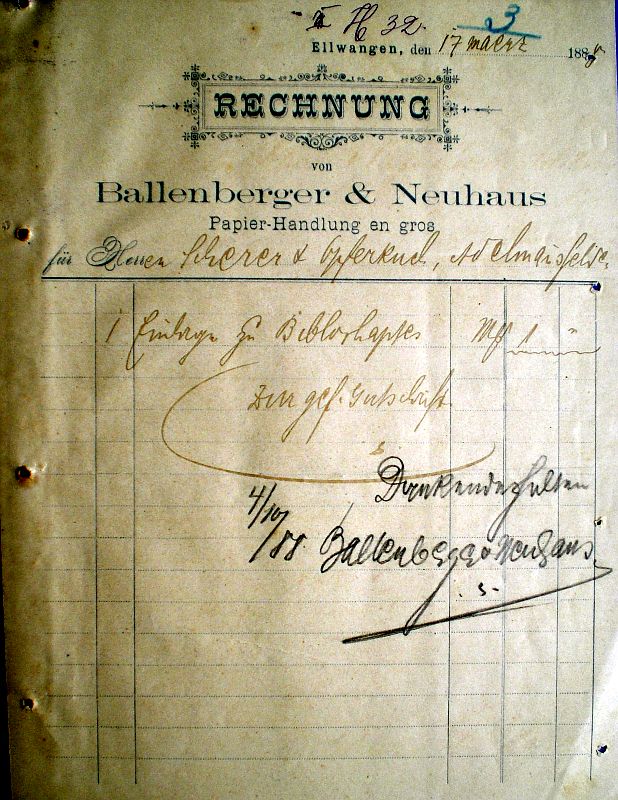 H 32. 3
Ellwangen, den 17 Maerz 1888
RECHNUNG
von
Ballenberger & Neuhaus
Papier-Handlung en gros
für Herren Scherer & Opferkuch, Adelmannsfelden
1 Einlage zu Bibliorhaptes Mk 1 "
Zur gef. Gutschrift
Dankend erhalten
4/10/88. Ballenberger & Neuhaus